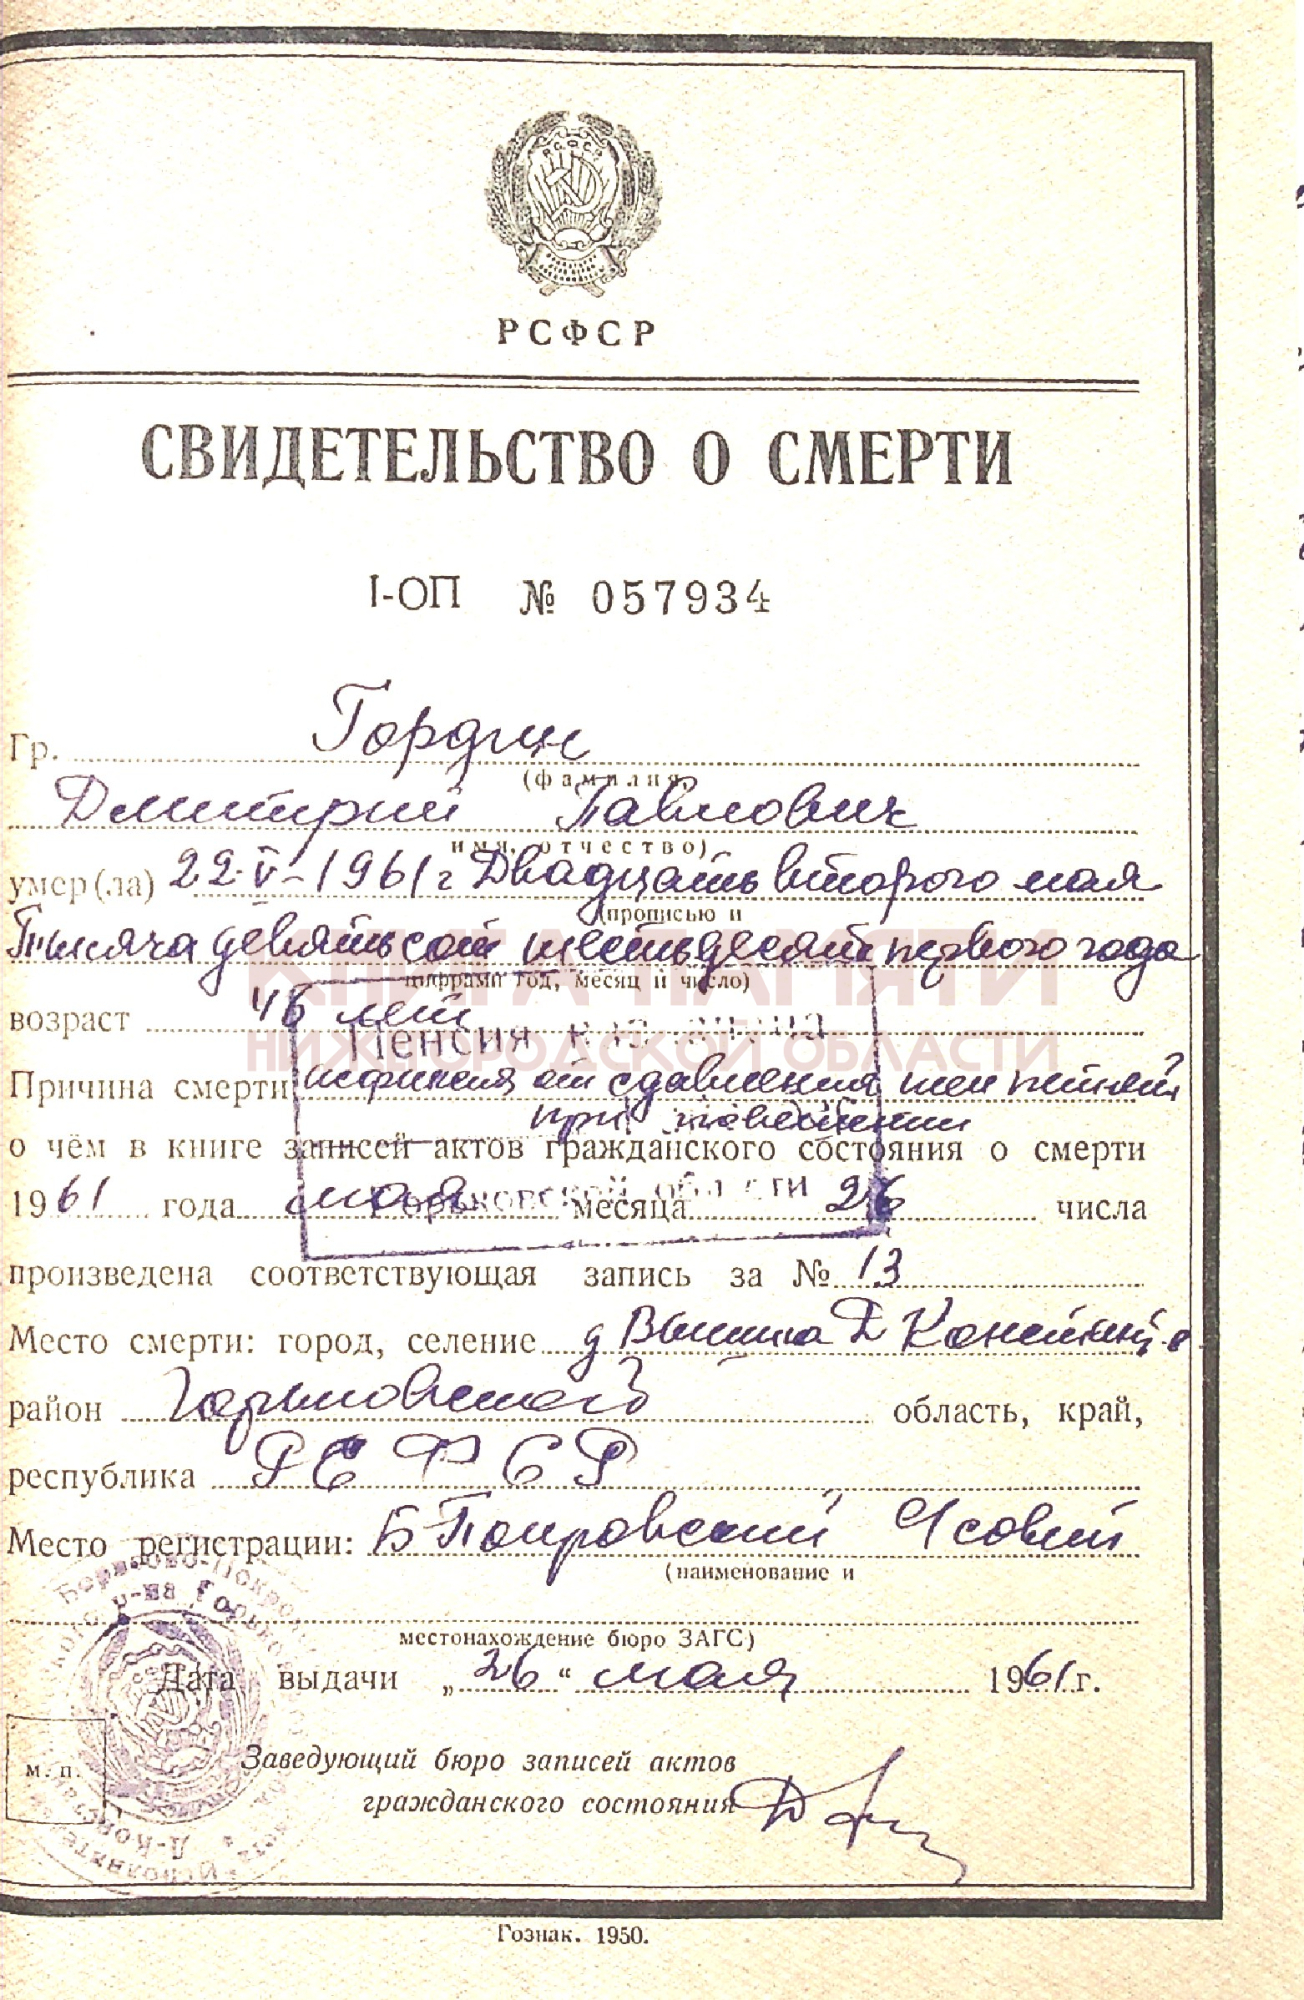 РСФСР
СВИДЕТЕЛЬСТВО О СМЕРТИ
I-ОП № 057934
Гр. Гордин
(фамилия,
Дмитрий Павлович
имя, отчество)
умер(ла) 22-V-1961г Двадцать второго мая
(прописью и
Тысяча девятьсот шестьдесят первого года
цифрами год, месяц и число)
КНИГА ПАМЯТИ
возраст 46 лет
Пенсия
НИЖЕГОРОДСКОЙ ОБЛАСТИ
Причина смерти от сдавления шеи петлей
при
о чём в книге записей актов гражданского состояния о смерти
1961 года мая месяца 26 числа
Горьковской области
произведена соответствующая запись за № 13
Место смерти: город, селение д Д Константин-о
район Горьковской область, край,
республика РСФСР
Место регистрации: Б Покровский с/совет
(наименование и
местонахождение бюро ЗАГС)
Дата выдачи „26“ мая 1961г.
м. п.
Заведующий бюро записей актов
гражданского состояния
Гознак. 1950.